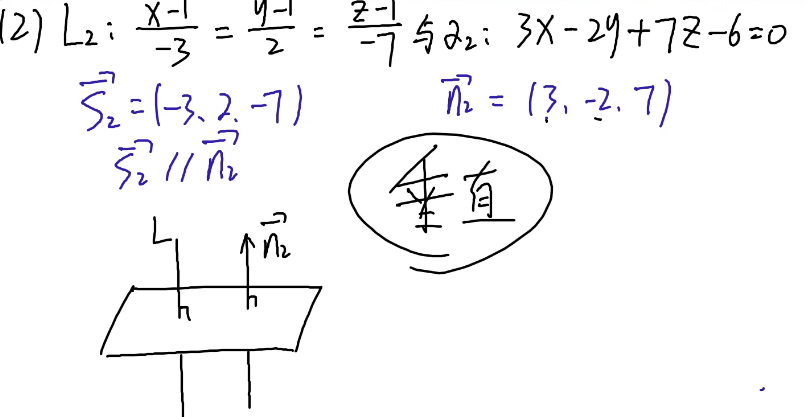 (2) L₂: (x-1)/(-3) = (y-1)/2 = (z-1)/(-7) 与 α₂: 3x-2y+7z-6=0
S₂ = (-3, 2, -7) n₂ = (3, -2, 7)
S₂ // n₂
垂直
L n₂